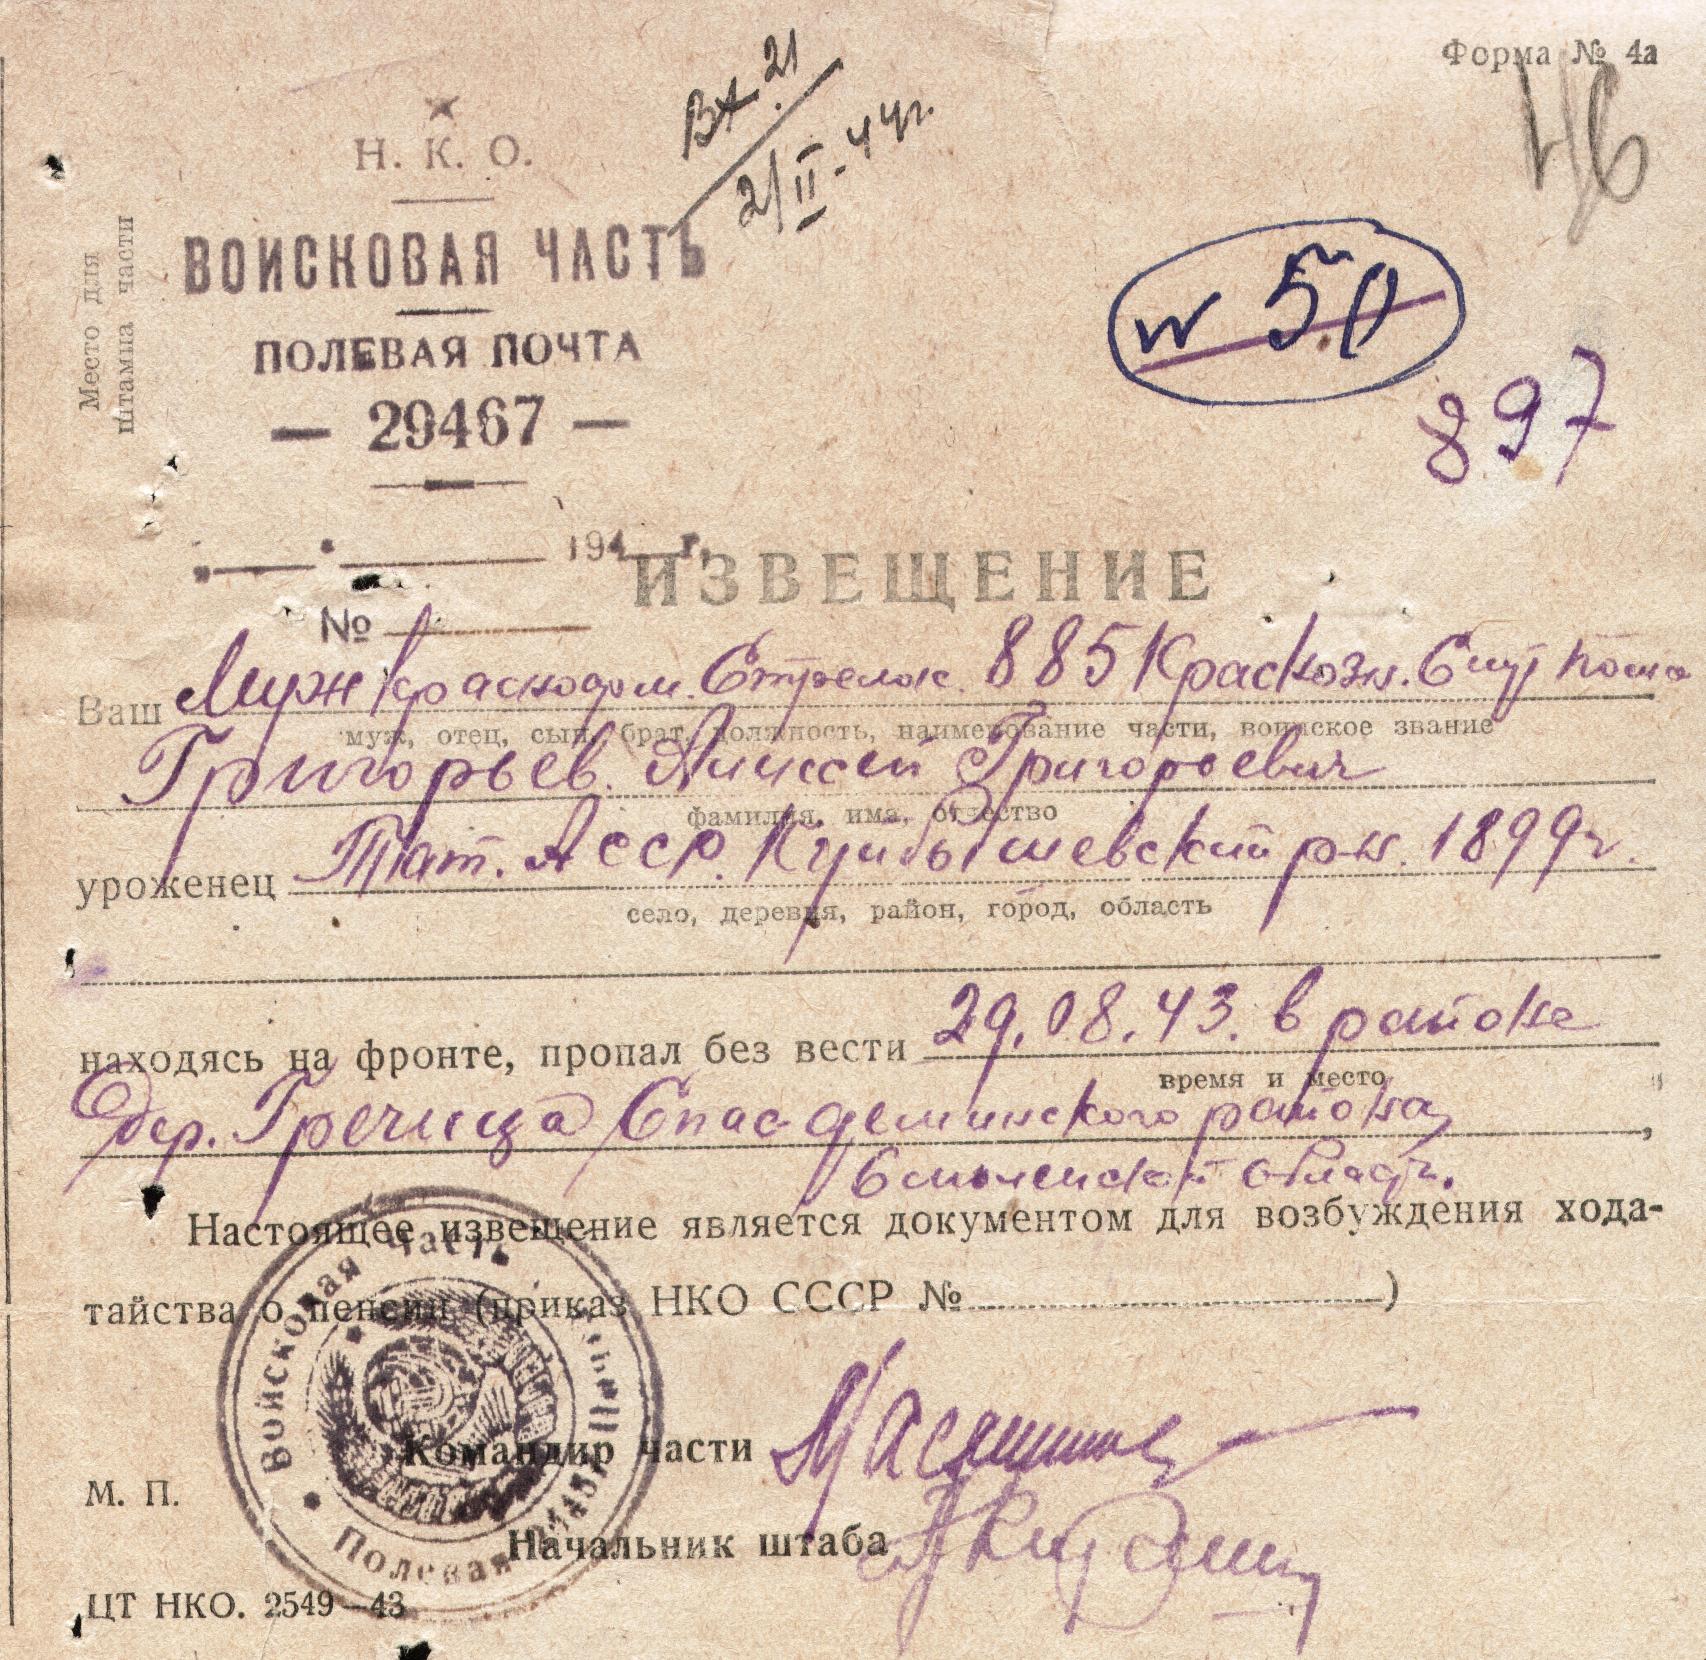 Форма № 4а
46
Вх. 21
21/II-44г.
Н. К. О.
ВОИСКОВАЯ ЧАСТЬ
ПОЛЕВАЯ ПОЧТА
— 29467 —
Место для
штампа части
N 50
897
194 г.
№
ИЗВЕЩЕНИЕ
Ваш Муж красноарм. Стрелок. 885 Краскозн. Стр полка
муж, отец, сын, брат, должность, наименование части, воинское звание
Григорьев. Алексей Григорьевич
фамилия, има, отчество
уроженец Тат. Асср. Куйбышевский р-н. 1899г.
село, деревня, район, город, область
находясь на фронте, пропал без вести 29.08.43. в районе
время и место
дер. Гречища Спас-деминского района,
Смоленской област.
Настоящее извещение является документом для возбуждения хода-
тайства о пенсии (приказ НКО СССР № )
Командир части
М. П.
Начальник штаба
Войсковая часть
Полевая
ЦТ НКО. 2549—43